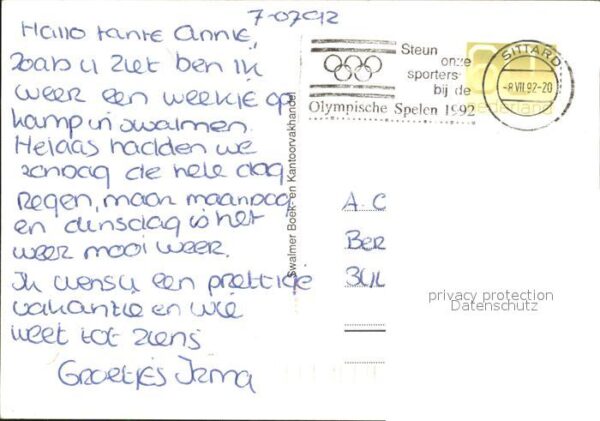 7-07-92
Hallo tante Annie,
Zoals u ziet ben ik
weer een weekje op
kamp in Swalmen.
Helaas hadden we
zondag de hele dag
regen, maar maandag
en dinsdag is het
weer mooi weer.
Ik wens u een prettige
vakantie en wie
weet tot ziens
Groetjes Irma
Swalmer Boek- en Kantoorvakhandel
Steun
onze
sporters
bij de
Olympische Spelen 1992
SITTARD
-8.VII.92-20
Nederland
A.C
Ber
privacy protection
Datenschutz